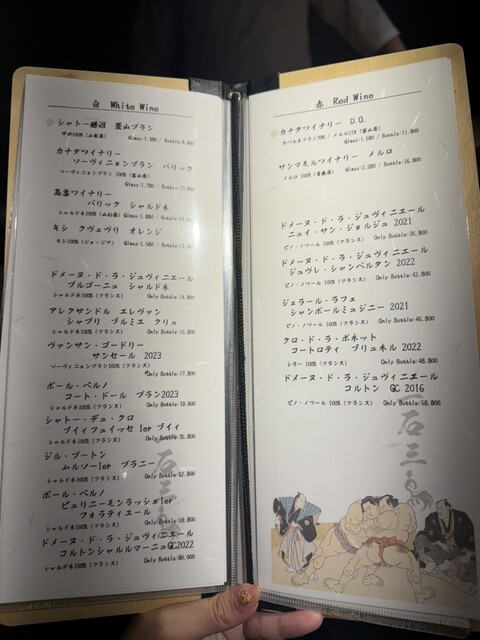 白 White Wine
シャトー勝沼 菱山ブラン
甲州100% (山梨県) Glass:1.380 / Bottle:8.800
カナタワイナリー
ソーヴィニョンブラン バリック
ソーヴィニョンブラン 100% (富山県)
Glass:1.780 / Bottle:13.800
高畠ワイナリー
バリック シャルドネ
シャルドネ100% (山形県) Glass:1.880 / Bottle:14.
キシ クヴェヴリ オレンジ
キシ100% (ジョージア) Glass:1.580 / Bottle:11.800
ドメーヌ・ド・ラ・ジュヴィニエール
ブルゴーニュ シャルドネ
シャルドネ100% (フランス) Only Bottle:14.800
アレクサンドル エレヴァン
シャブリ プルミエ クリュ
シャルドネ100% (フランス) Only Bottle:15.800
ヴァンサン・ゴードリー
サンセール 2023
ソーヴィニョンブラン100% (フランス)
Only Bottle:17.800
ポール・ペルノ
コート・ドール ブラン2023
シャルドネ100% (フランス) Only Bottle:19.800
シャトー・デュ・クロ
プイィフュイッセ 1er プイィ
シャルドネ100% (フランス) Only Bottle:35.800
ジル・ブートン
ムルソー1er ブラニー
シャルドネ100% (フランス) Only Bottle:52.800
ポール・ペルノ
ピュリニーモンラッシェ1er
フォラティエール
シャルドネ100% (フランス) Only Bottle:59.800
ドメーヌ・ド・ラ・ジュヴィニエール
コルトンシャルルマーニュGC2022
シャルドネ100% (フランス) Only Bottle:60.000
赤 Red Wine
カナタワイナリー D.O.
カベルネフラン79% / メルロ21% (富山県)
Glass:1.580 / Bottle:11.800
サンマモルワイナリー メルロ
メルロ 100% (青森県) Glass:2.280 / Bottle:16.800
ドメーヌ・ド・ラ・ジュヴィニエール
ニュイ・サン・ジョルジュ 2021
ピノ・ノワール 100% (フランス) Only Bottle:35.800
ドメーヌ・ド・ラ・ジュヴィニエール
ジュヴレ・シャンベルタン 2022
ピノ・ノワール 100% (フランス) Only Bottle:42.800
ジェラール・ラフェ
シャンボールミュジニー 2021
ピノ・ノワール 100% (フランス) Only Bottle:45.800
クロ・ド・ラ・ボネット
コートロティ プリュネル 2022
シラー 100% (フランス) Only Bottle:48.800
ドメーヌ・ド・ラ・ジュヴィニエール
コルトン GC 2016
ピノ・ノワール 100% (フランス) Only Bottle:58.800
石三